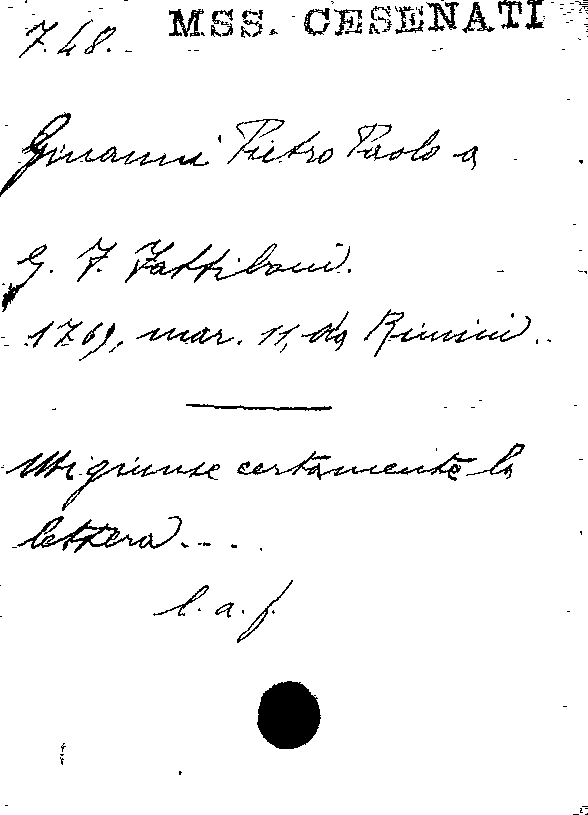 7.48. MSS. CESENATI
Giovanni Pietro Paolo a
G. F. Fattiboni.
1769, mar. 11, da Rimini.
Mi giunse certamente la
lettera....
l. a. f.